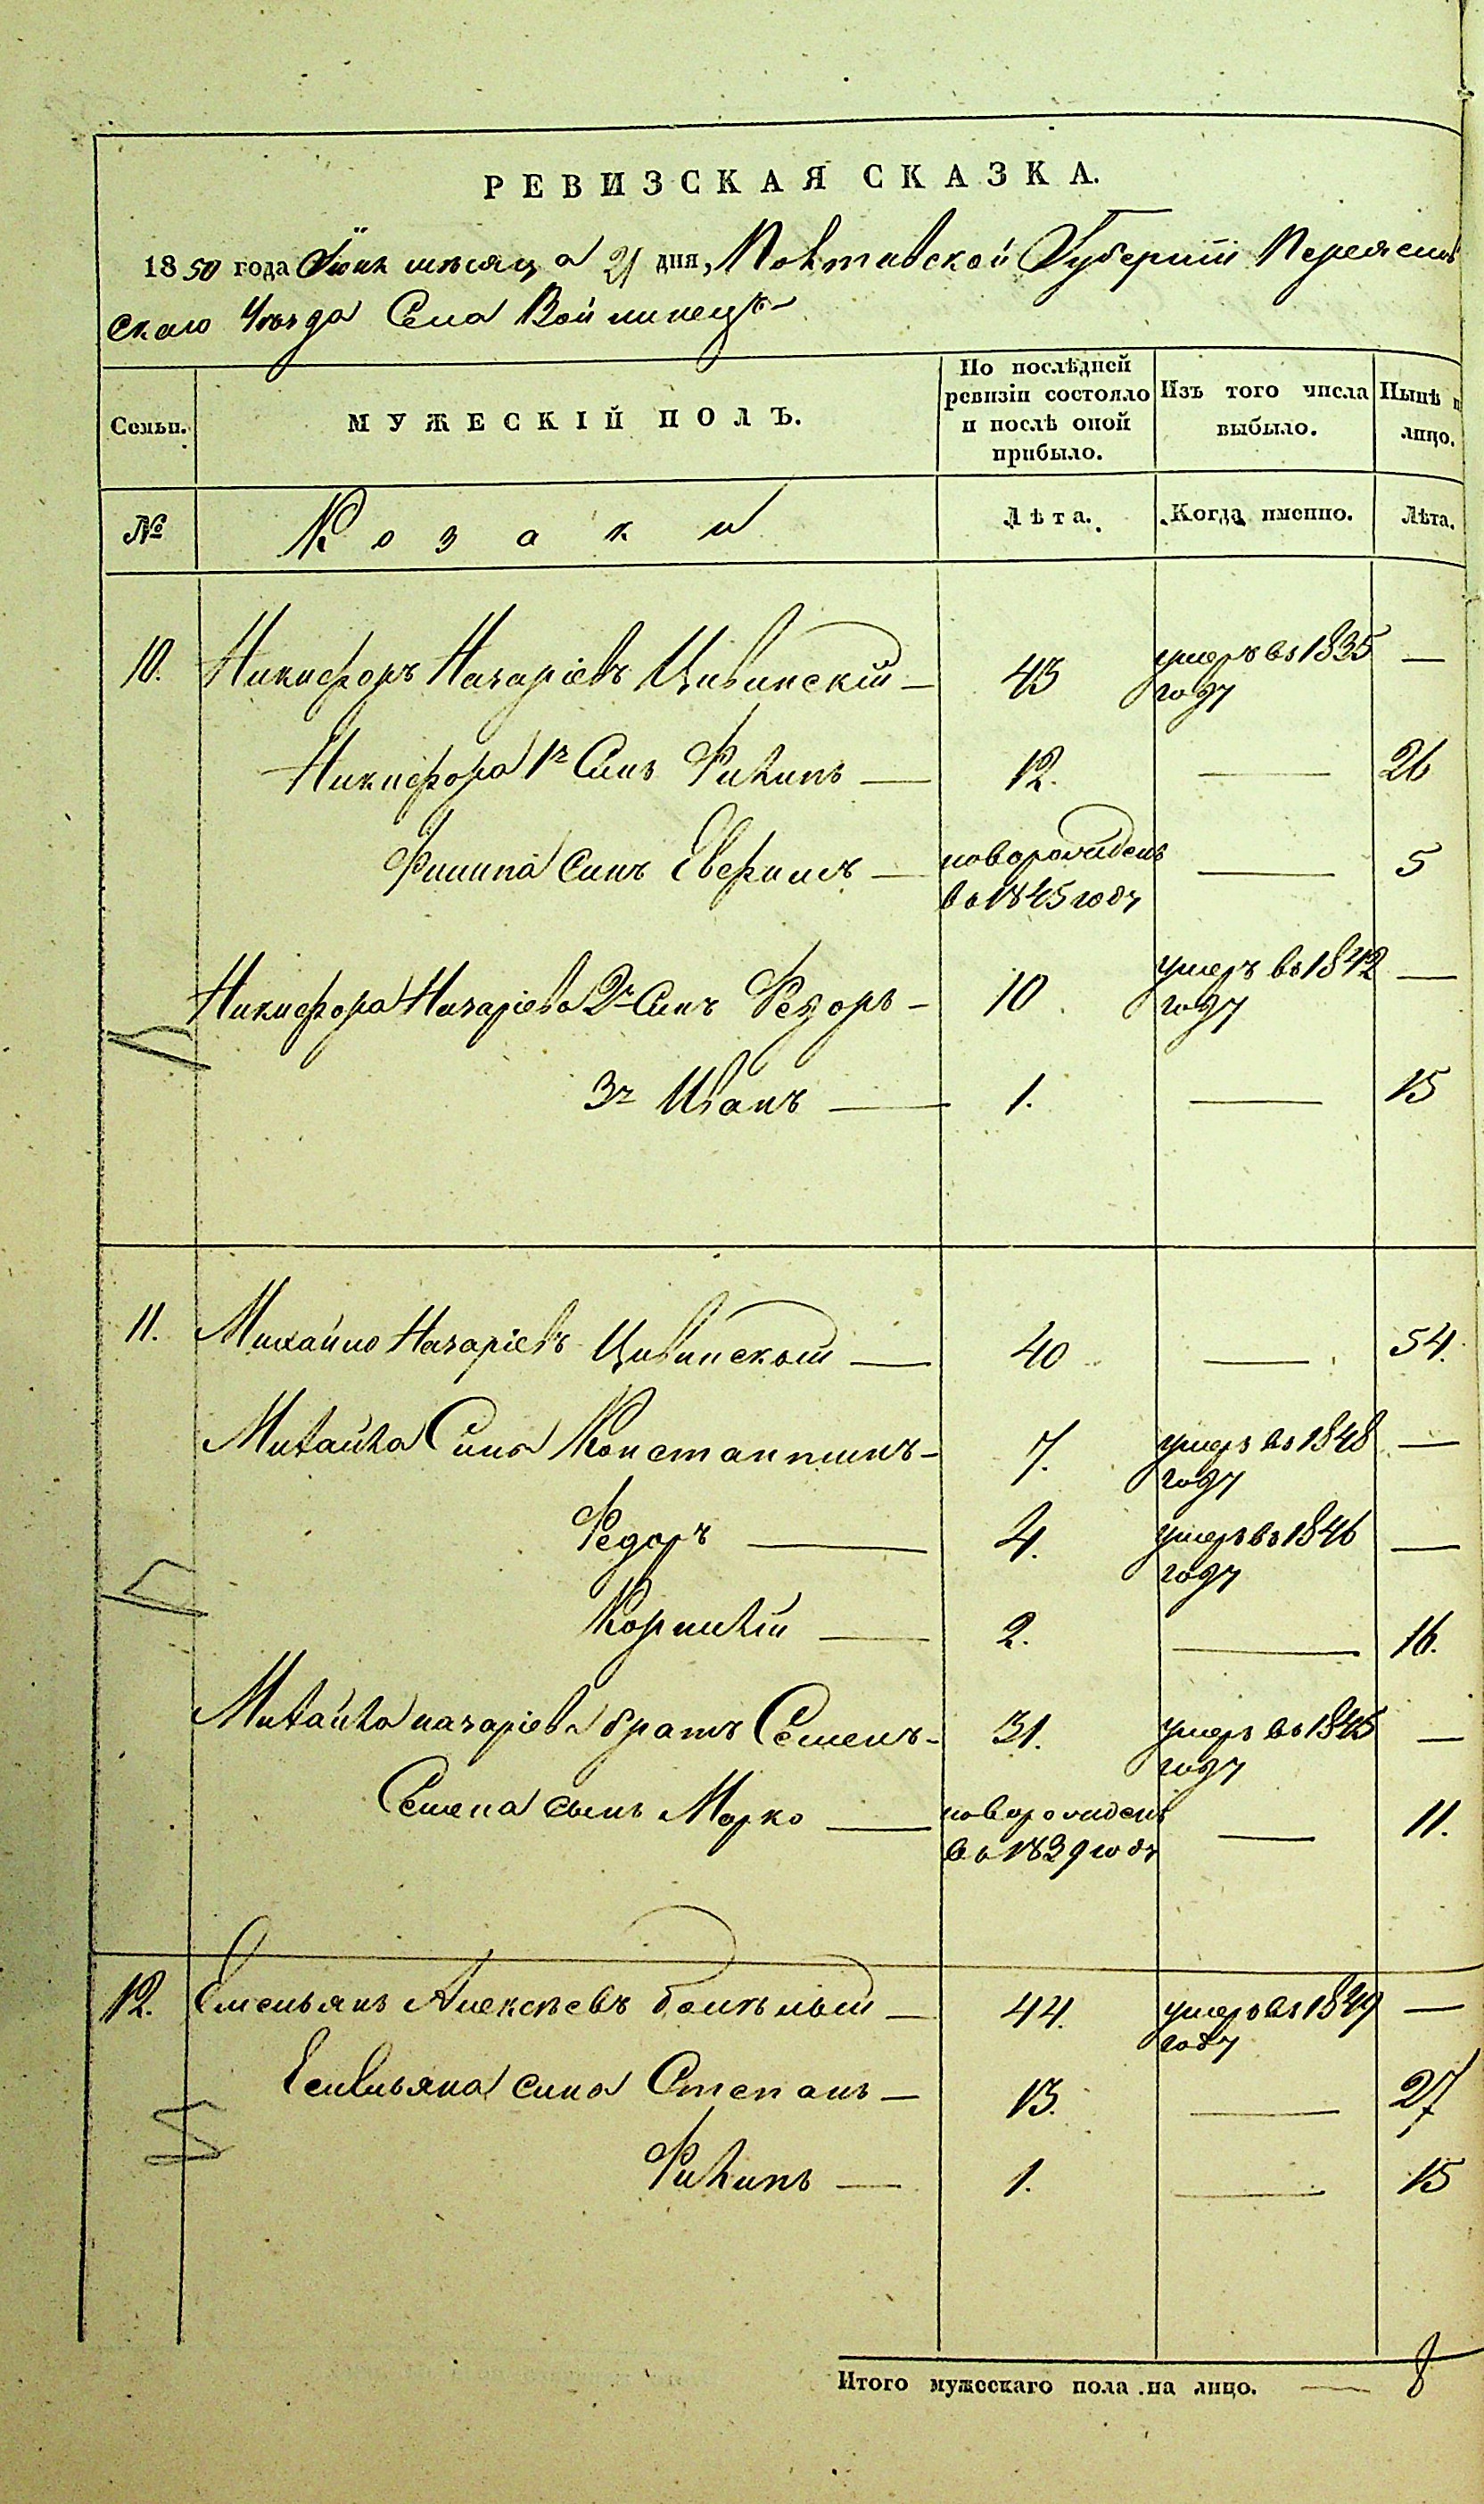 РЕВИЗСКАЯ СКАЗКА.
1850 года Іюня мѣсяца 21 дня, Полтавской Губерніи Переяслав
скаго Уѣзда Села Войтинецъ
Семьи.
МУЖЕСКІЙ ПОЛЪ.
По послѣдней ревизіи состояло и послѣ оной прибыло.
Изъ того числа выбыло.
Нынѣ н лицо.
№
Козаки
Лѣта.
Когда именно.
Лѣта.
10. Никифоръ Назаріевъ Цивинскій — 43 умеръ въ 1835 —
году
Никифора 1й Синъ Филипъ — 12. — 26
Филипа синъ Евфимъ — новорожденъ — 5
въ 1845 году
Никифора Назаріева 2й Синъ Федоръ — 10 умеръ въ 1842 —
году
3й Иванъ — 1. — 15
11. Михайло Назаріевъ Цивинскый — 40 — 54.
Михайла Сины Константинъ — 7. умеръ въ 1848 —
году
Федоръ — 4. умеръ въ 1846 —
году
Корнилій — 2. — 16.
Михайла назаріева братъ Семенъ — 31. умеръ въ 1845 —
году
Семена сынъ Марко — новорожденъ — 11.
въ 1839 году
12. Емельянъ Алексѣевъ — 44. умеръ въ 1849 —
году
Емельяна сины Степанъ — 13. — 27
Филипъ — 1. — 15
Итого мужескаго пола на лицо. — 8